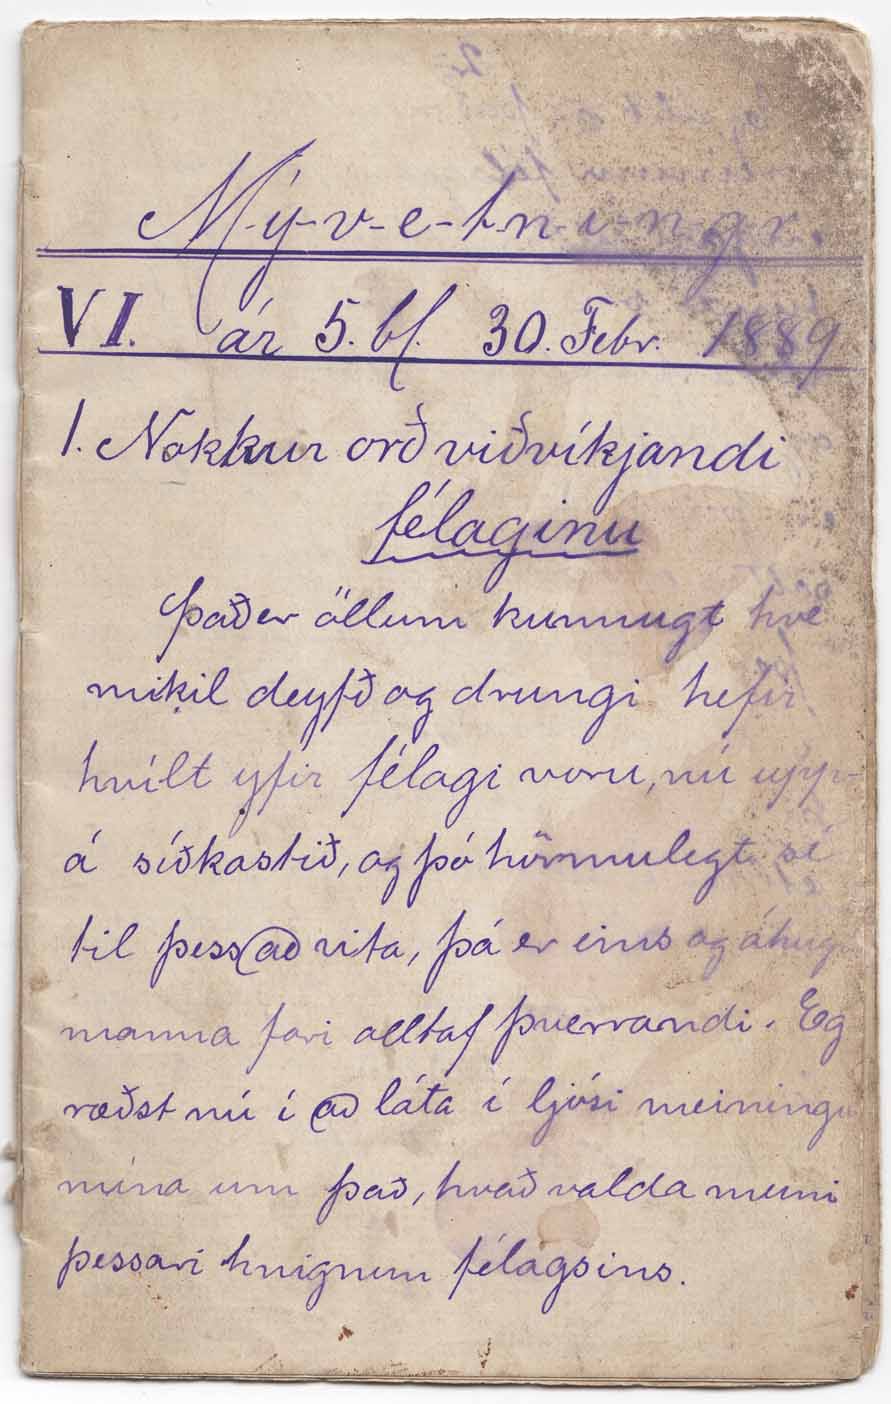 M-ý-v-e-t-n-i-n-g-r.
VI. ár 5. bl. 30. Febr. 1889
1. Nokkur orð viðvíkjandi
félaginu
Það er öllum kunnugt hve
mikil deyfð og drungi hefir
hvílt yfir félagi voru, nú upp-
á síðkastið, og þó hörmulegt sé
til þess að vita, þá er eins og áhugi
manna fari alltaf þverrandi. Eg
ræðst nú í að láta í ljósi meiningu
mína um það, hvað valda muni
þessari hnignun félagsins.